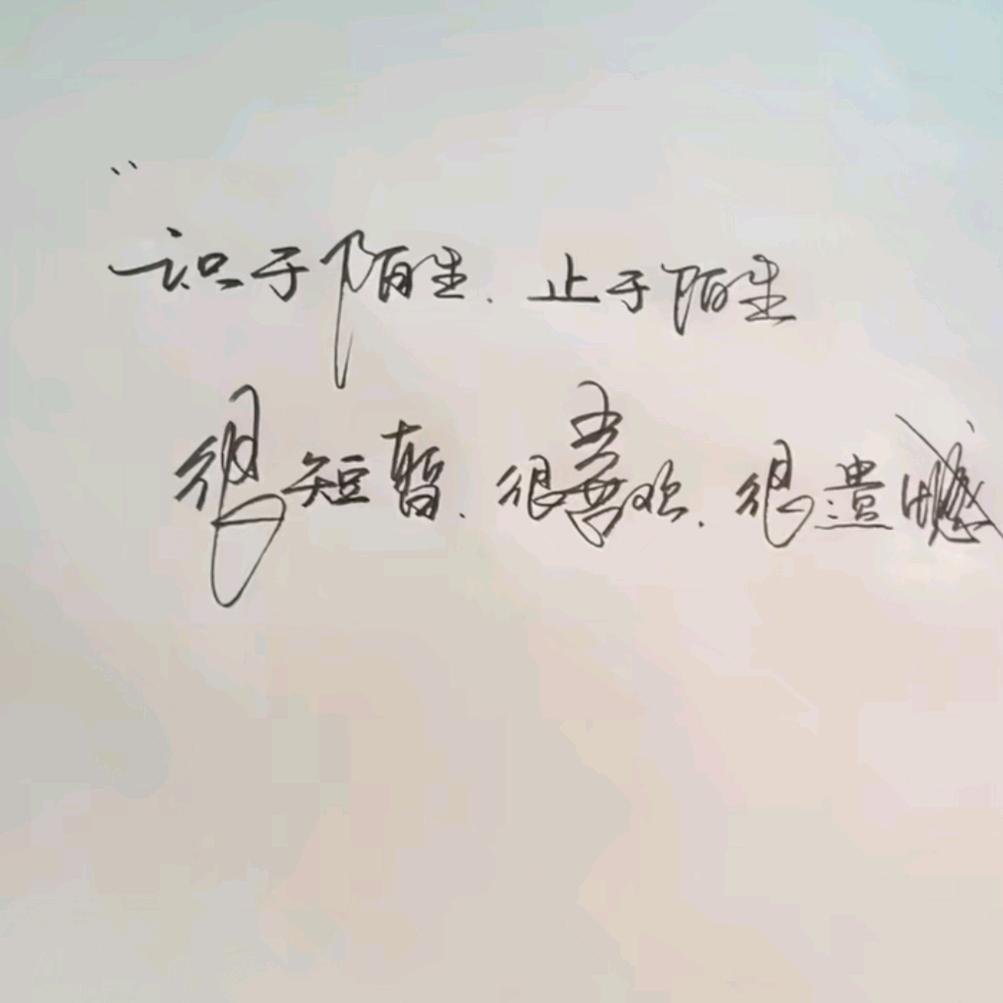 “
识于陌生.止于陌生
很短暂.很喜欢.很遗憾